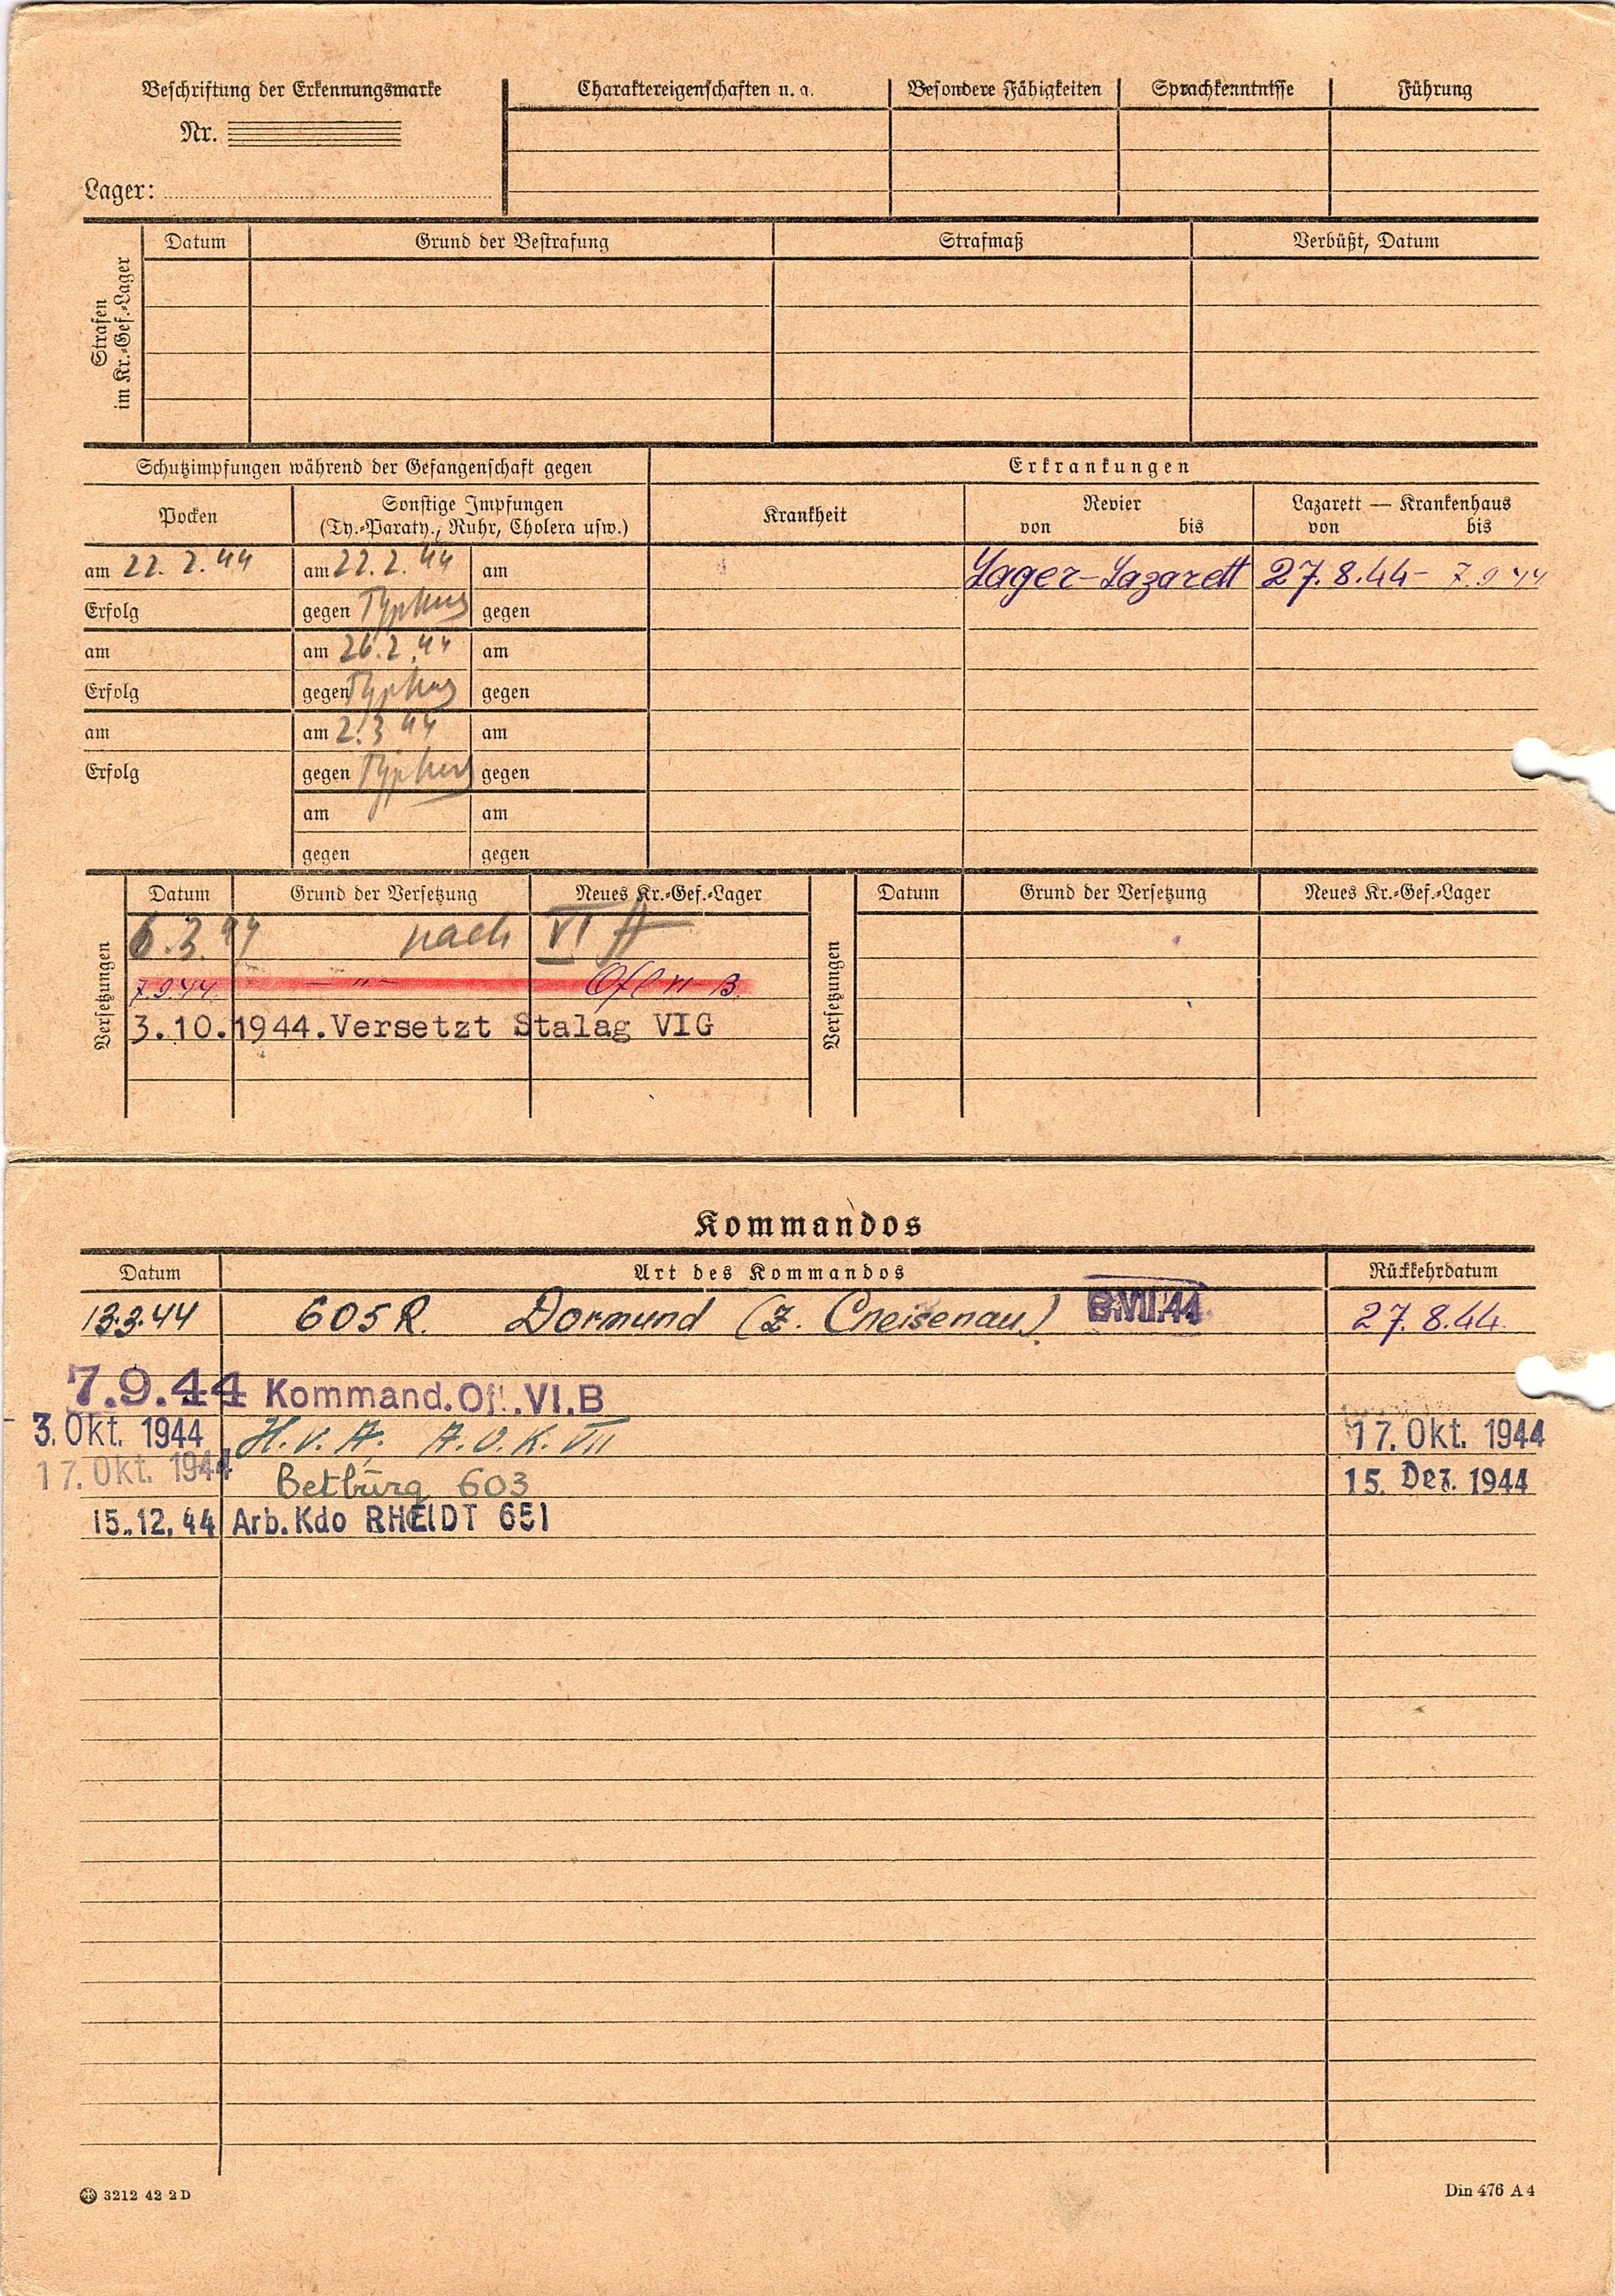 Beschriftung der Erkennungsmarke Charaktereigenschaften u. a. Besondere Fähigkeiten Sprachkenntnisse Führung
Nr.
Lager:
Strafen im Kr.-Gef.-Lager
Datum Grund der Bestrafung Strafmaß Verbüßt, Datum
Schutzimpfungen während der Gefangenschaft gegen Erkrankungen
Pocken Sonstige Impfungen (Ty.-Paraty., Ruhr, Cholera usw.) Krankheit Revier von bis Lazarett — Krankenhaus von bis
am 22. 2. 44 am 22. 2. 44 am Lager-Lazarett 27.8.44- 7.9.44
Erfolg gegen Typhus gegen
am am 26.2.44 am
Erfolg gegen Typhus gegen
am am 2.3.44 am
Erfolg gegen Typhus gegen
am am
gegen gegen
Versetzungen Datum Grund der Versetzung Neues Kr.-Gef.-Lager Versetzungen Datum Grund der Versetzung Neues Kr.-Gef.-Lager
6.3.44 nach VI A
7.9.44. — " — Ofl VI B.
3.10.1944.Versetzt Stalag VIG
Kommandos
Datum Art des Kommandos Rückkehrdatum
13.3.44 605 R. Dormund (Z. Cneisenau) 27.8.44.
7.9.44 Kommand.Ofl.VI.B
- 3. Okt. 1944 H.V.A. A.O.K. VII 17. Okt. 1944
17. Okt. 1944 Betburg 603 15. Dez. 1944
15.12.44 Arb.Kdo RHEIDT 651
3212 42 2 D Din 476 A 4